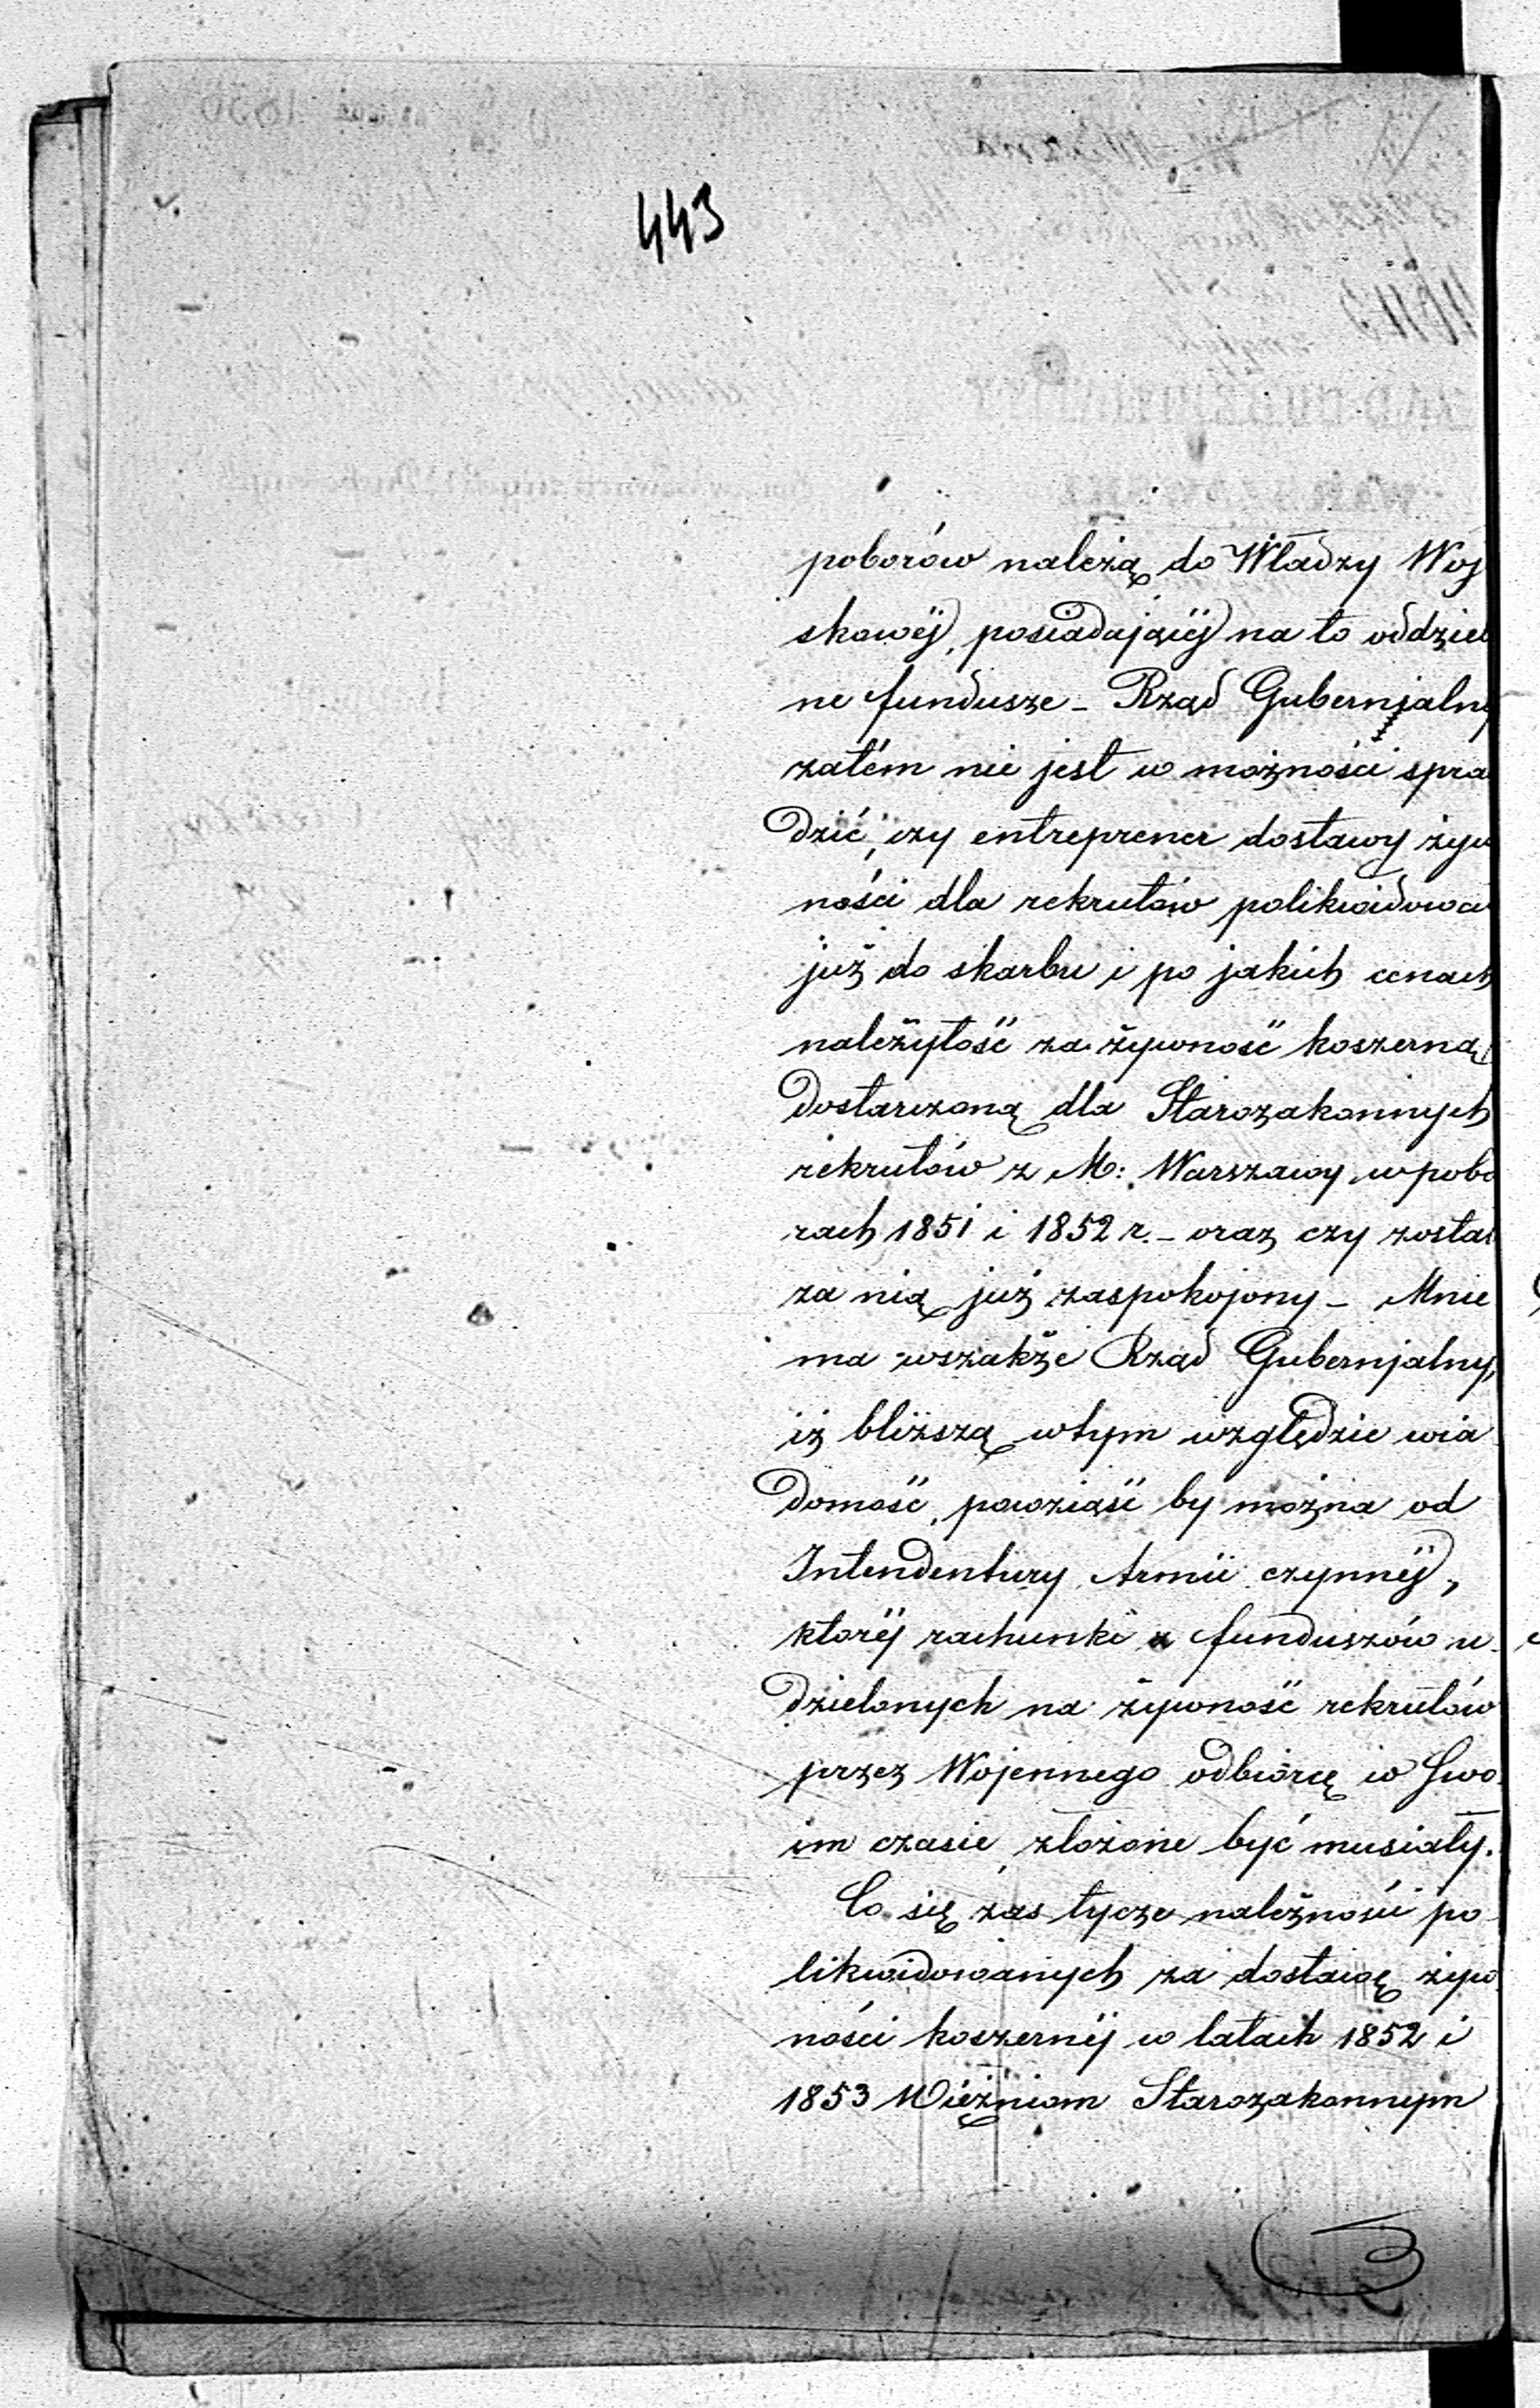 443
poborów należą do Władzy Woj
skowéj, posiadającéj na to oddziel
ne fundusze – Rząd Gubernjalny
zatém nie jest w możności spra
dzić, czy entreprener dostawy żyw
ności dla rekrutów polikwidował
już do skarbu i po jakich cenach
należytość za żywność koszerną
dostarczoną dla Starozakonnych
rekrutów z M: Warszawy w pobo
rach 1851 i 1852 r. – oraz czy został
za nią już zaspokojony – Mnie
ma wszakże Rząd Gubernjalny,
iż bliższą w tym względzie wia
domość, powziąść by można od
Intendentury Armii czynnéj,
któréj rachunki z funduszów u-
dzielonych na żywność rekrutów
przez Wojennego odbiorcę w Swo
im czasie złożone być musiały.
Co się zaś tycze należności po-
likwidowanych za dostawę żyw
ności koszernéj w latach 1852 i
1853 Więźniom Starozakonnym